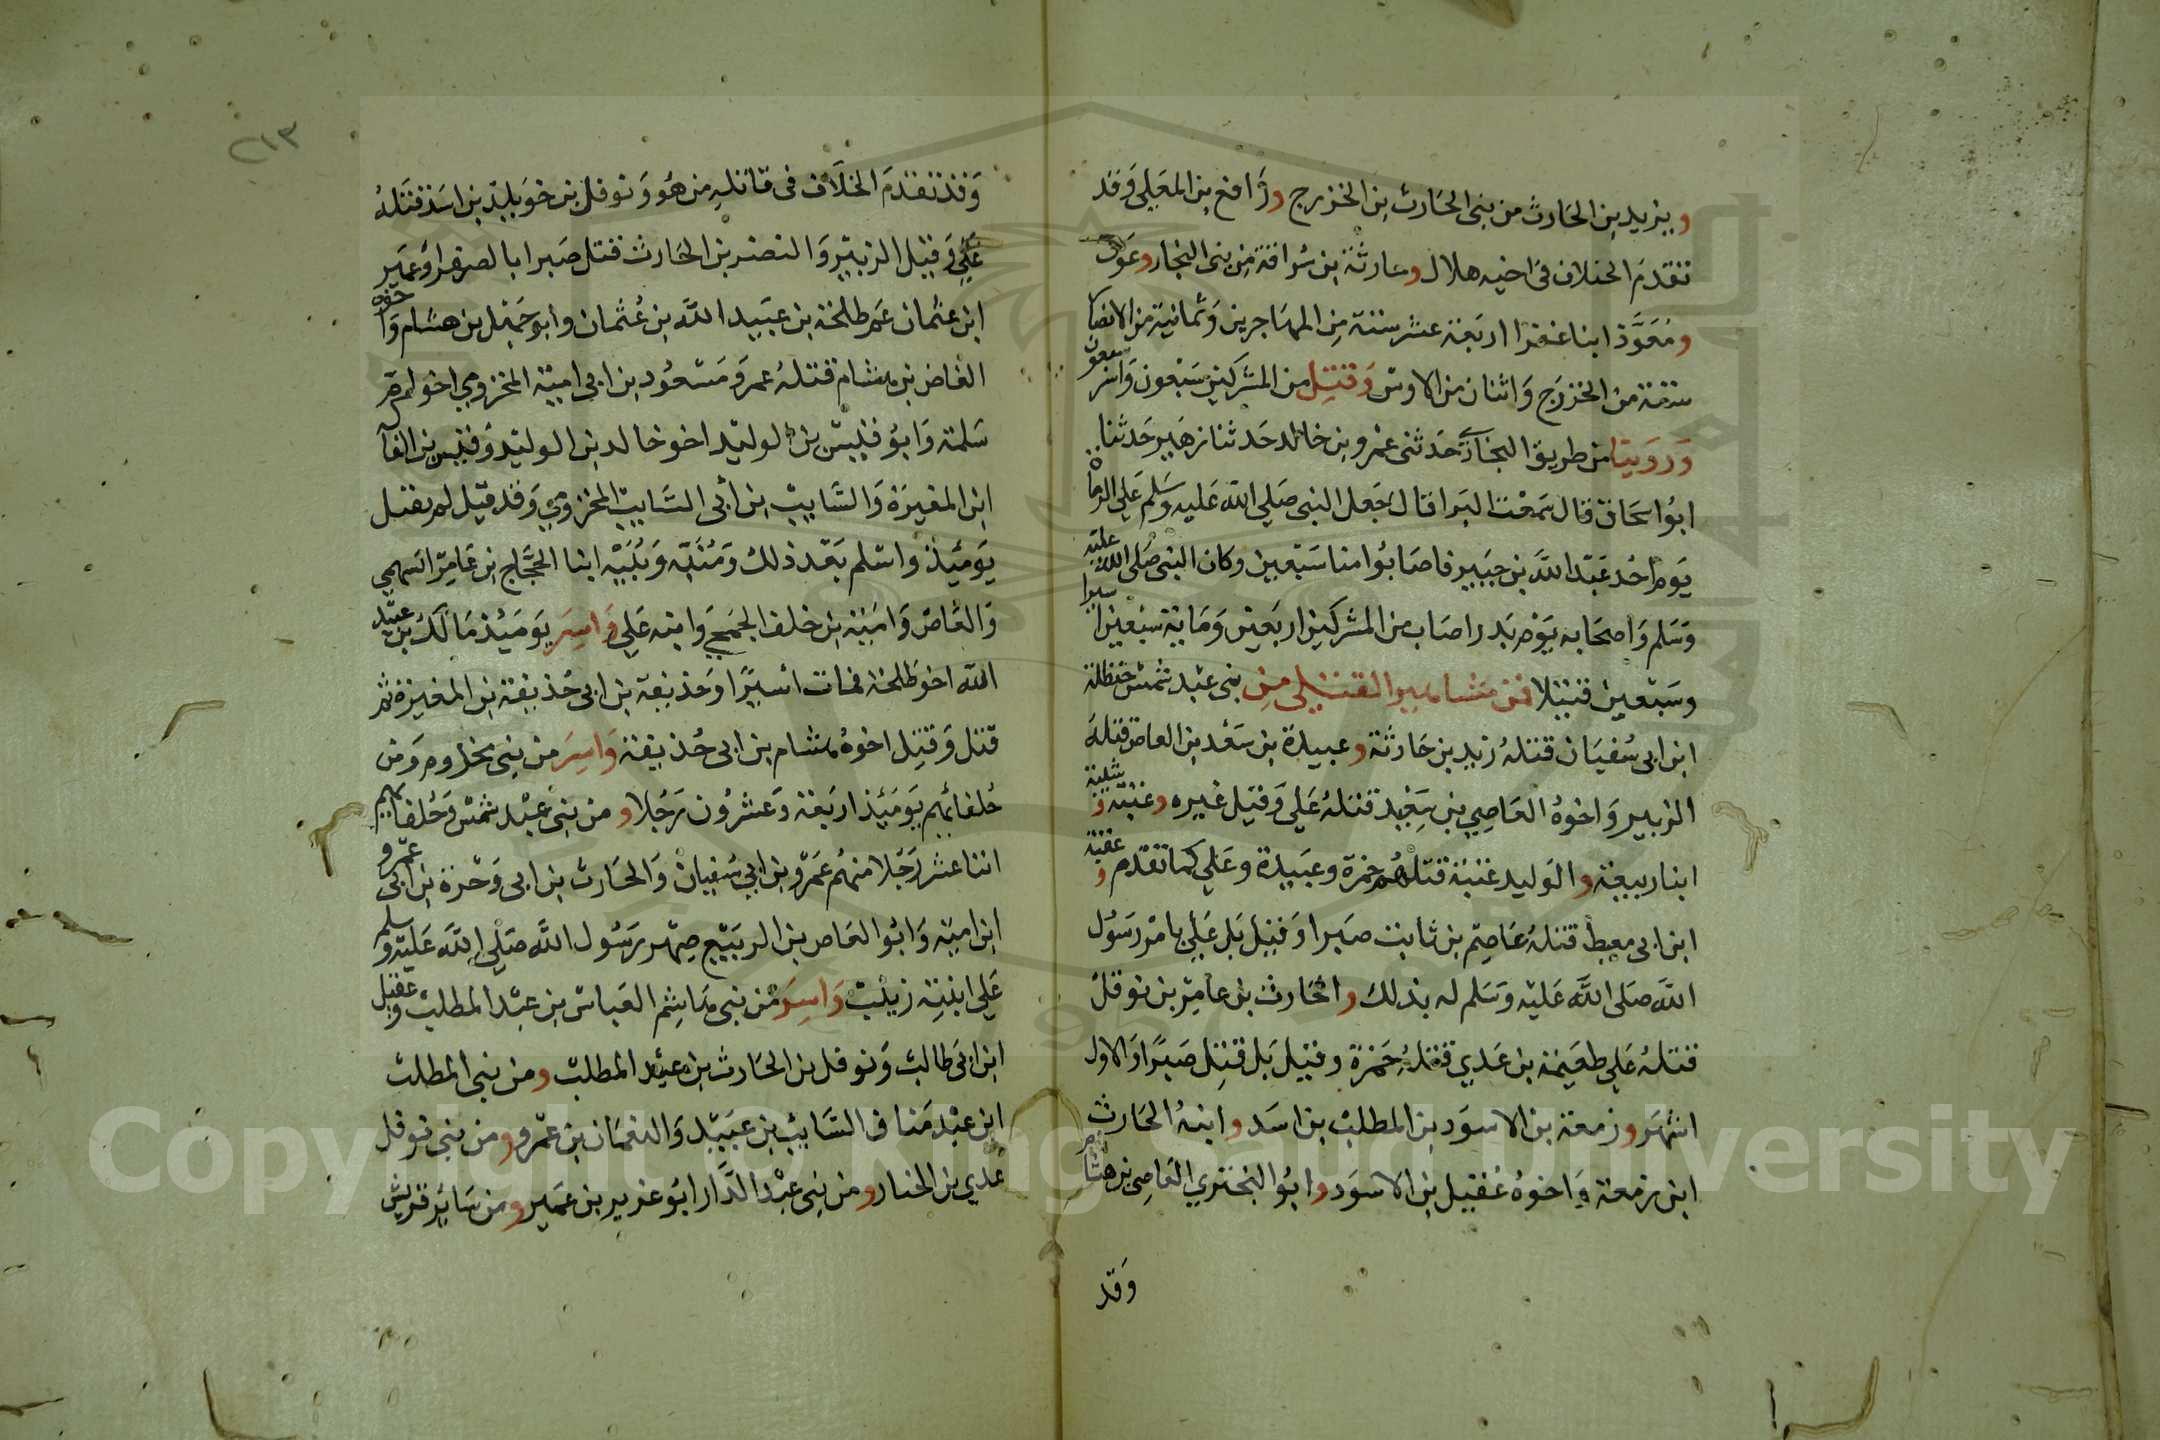 ويزيد بن الحارث من بني الحارث بن الخزرج ورافع بن المعلي وقد
تقدم الخلاف في اخيه هلال وحارثة بن سراقة من بني النجار وعوف
ومعوذ ابنا عفرا اربعة عشر ستة من المهاجرين وثمانية من الانصار
ستة من الخزرج واثنان من الاوس وقتل من المشركين سبعون واسر سبعون
وروينا من طريق البخاري حدثني عمرو بن خالد حدثنا زهير حدثنا
ابو اسحاق قال سمعت البرا قال جعل النبي صلي الله عليه وسلم علي الرماة
يوم احد عبد الله بن جبير فاصابوا منا سبعين وكان النبي صلي الله عليه
وسلم واصحابه يوم بدر اصاب من المشركين اربعين ومائة سبعين اسيرا
وسبعين قتيلا فمن مشاهير القتلي من بني عبد شمس حنظلة
ابن ابي سفيان قتله زيد بن حارثة وعبيدة بن سعد بن العاص قتله
الزبير واخوه العاصي بن سعيد قتله علي وقيل غيره وعتبة وشيبة
ابنا ربيعة والوليد بن عتبة قتلهم حمزة وعبيدة وعلي كما تقدم وعقبة
ابن ابي معيط قتله عاصم بن ثابت صبرا وقيل بل علي بامر رسول
الله صلي الله عليه وسلم له بذلك والحارث بن عامر بن نوفل
قتله علي طعيمة بن عدي قتله حمزة وقيل بل قتل صبرا والاول
اشهر وزمعة بن الاسود بن المطلب بن اسد وابنه الحارث
ابن زمعة واخوه عقيل بن الاسود وابو البختري العاصي بن هشام
وقد
٢١٣
وقد تقدم الخلاف في قاتله من هو ونوفل بن خويلد بن اسد قتله
علي وقيل الزبير والنضر بن الحارث قتل صبرا بالصفرا وعمير
ابن عثمان عم طلحة بن عبيد الله بن عثمان وابو جهل بن هشام واخوه
العاص بن هشام قتله عمر ومسعود بن ابي امية المخزومي اخو ام
سلمة وابو قيس بن الوليد اخو خالد بن الوليد وقيس بن الفاكه
ابن المغيرة والسايب بن أبي السايب المخزومي وقد قيل لم يقتل
يومئذ واسلم بعد ذلك ومنبه ونبيه ابنا الحجاج بن عامر السهمي
والعاص وامية بن خلف الجمحي وابنه علي واسر يومئذ مالك بن عبيد
الله اخو طلحة فمات اسيرا وحذيفة بن ابي حذيفة بن المغيرة ثم
قتل وقتل اخوه هشام بن ابي حذيفة واسر من بني مخزوم ومن
حلفائهم يومئذ اربعة وعشرون رجلا ومن بني عبد شمس وحلفائهم
اثنا عشر رجلا منهم عمرو بن ابي سفيان والحارث بن ابي وحرة بن ابي عمرو
ابن امية وابو العاص بن الربيع صهر رسول الله صلي الله عليه وسلم
علي ابنته زينب واسر من بني هاشم العباس بن عبد المطلب وعقيل
ابن ابي طالب ونوفل بن الحارث بن عبد المطلب ومن بني المطلب
ابن عبد مناف السايب بن عبيد والنعمان بن عمرو ومن بني نوفل
عدي بن الخيار ومن بني عبد الدار ابو عزيز بن عمير ومن سائر قريش
Copyright © King Saud University